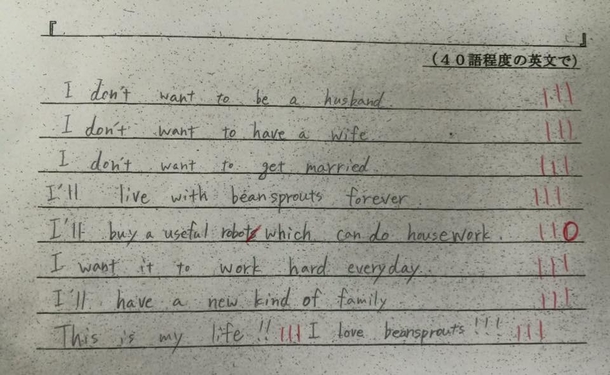 『 』
(40語程度の英文で)
I don't want to be a husband
I don't want to have a wife
I don't want to get married
I'll live with beansprouts forever.
I'll buy a useful robots which can do housework.
I want it to work hard everyday.
I'll have a new kind of family
This is my life!! I love beansprouts!!!